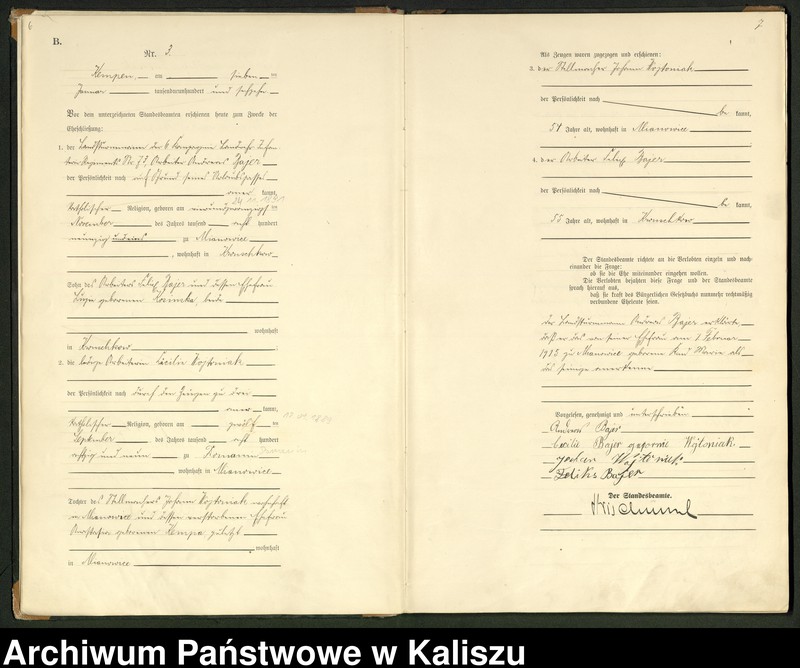 6
B.
Nr. 3.
Kempen, am sieben ten
Januar tausendneunhundert und sechzehn
Vor dem unterzeichneten Standesbeamten erschienen heute zum Zwecke der
Eheschließung:
1. der Landsturmmann der 6 Kompagnie Landwehr Infan
terie Regiments Nr. 77 Arbeiter Andreas Bajer
der Persönlichkeit nach auf Grund seines Urlaubspasses
aner kannt,
24 11 1891
katholischer Religion, geboren am vierundzwanzigsten
November des Jahres tausend acht hundert
neunzig und eins zu Mianowice
, wohnhaft in
Sohn des Arbeiters Felix Bajer und dessen Ehefrau
geborenen beide
wohnhaft
in
2. die ledige Arbeiterin Cäcilie Wojtoniak
der Persönlichkeit nach durch den Zeugen zu drei
aner kannt,
katholischer Religion, geboren am zwölf ten
September des Jahres tausend acht hundert
achtzig und neun zu
wohnhaft in Mianowice
Tochter des Stellmachers Johann Wojtoniak wohnhaft
in Mianowice und dessen verstorbenen Ehefrau
geborenen Kempa zuletzt
wohnhaft
in Mianowice
7
Als Zeugen waren zugezogen und erschienen:
3. der Stellmacher Johann Wojtoniak
der Persönlichkeit nach
be kannt,
51 Jahre alt, wohnhaft in Mianowice
4. der Arbeiter Felix Bajer
der Persönlichkeit nach
be kannt,
55 Jahre alt, wohnhaft in
Der Standesbeamte richtete an die Verlobten einzeln und nach-
einander die Frage:
ob sie die Ehe miteinander eingehen wollen.
Die Verlobten bejahten diese Frage und der Standesbeamte
sprach hierauf aus,
daß sie kraft des Bürgerlichen Gesetzbuchs nunmehr rechtmäßig
verbundene Eheleute seien.
Der Landsturmmann Andreas Bajer erklärte,
daß er das von seiner Ehefrau am 1 Februar
1913 zu Mianowice geborene Kind Maria als
das seinige anerkenne
Vorgelesen, genehmigt und unterschrieben
Andreas Bajer
Cecilie Bajer geborne Wojtoniak
Feliks Bajer
Der Standesbeamte.
Archiwum Państwowe w Kaliszu